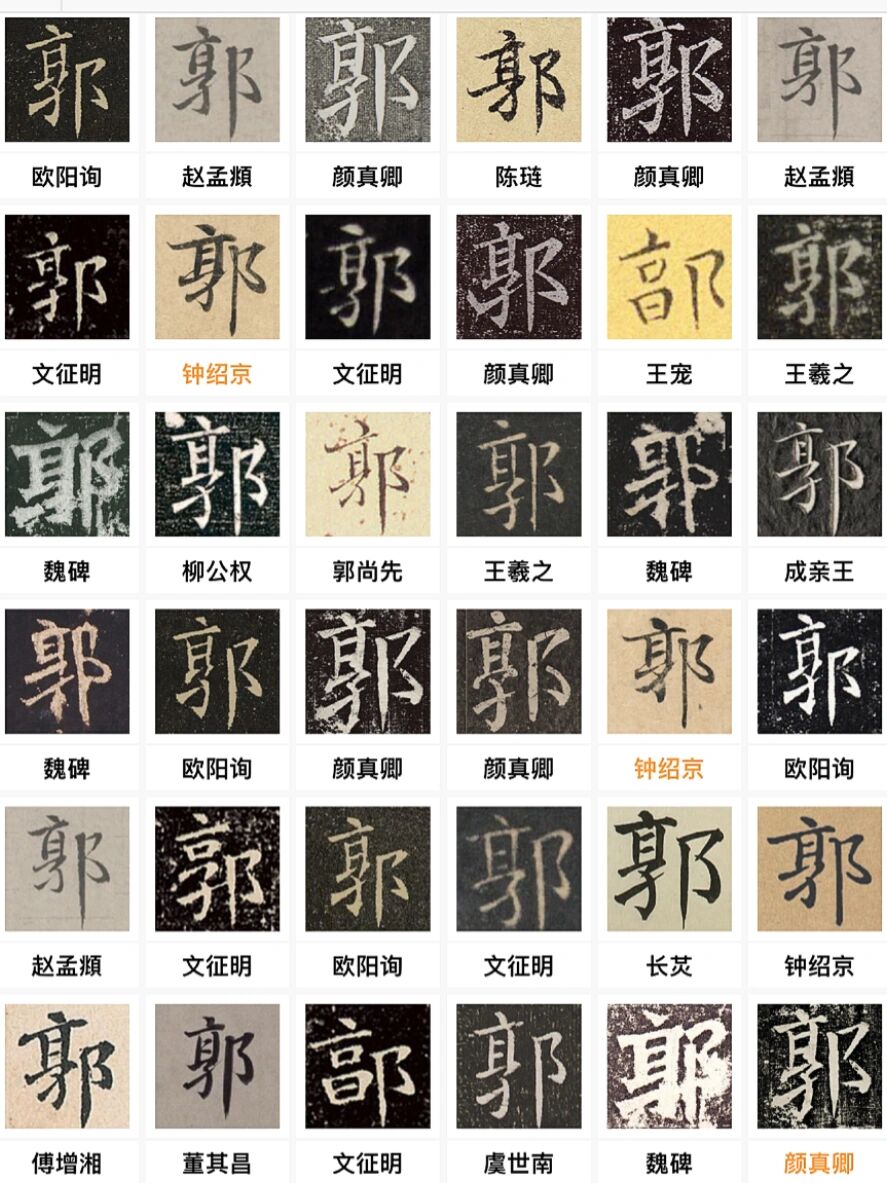 郭 郭 郭 郭 郭 郭
欧阳询 赵孟頫 颜真卿 陈琏 颜真卿 赵孟頫
郭 郭 郭 郭 郭 郭
文征明 钟绍京 文征明 颜真卿 王宠 王羲之
郭 郭 郭 郭 郭 郭
魏碑 柳公权 郭尚先 王羲之 魏碑 成亲王
郭 郭 郭 郭 郭 郭
魏碑 欧阳询 颜真卿 颜真卿 钟绍京 欧阳询
郭 郭 郭 郭 郭 郭
赵孟頫 文征明 欧阳询 文征明 长苂 钟绍京
郭 郭 郭 郭 郭 郭
傅增湘 董其昌 文征明 虞世南 魏碑 颜真卿